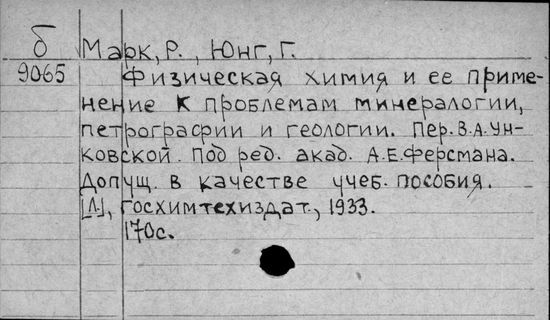 б Марк, Р., Юнг, Г.
9065 Физическая химия и ее приме-
нение к проблемам минералогии,
петрографии и геологии. Пер. В.А. Ун-
ковской. Под ред. акад. А.Е. Ферсмана.
Допущ. в качестве учеб. пособия.
[Л.], Госхимтехиздат, 1933.
170с.